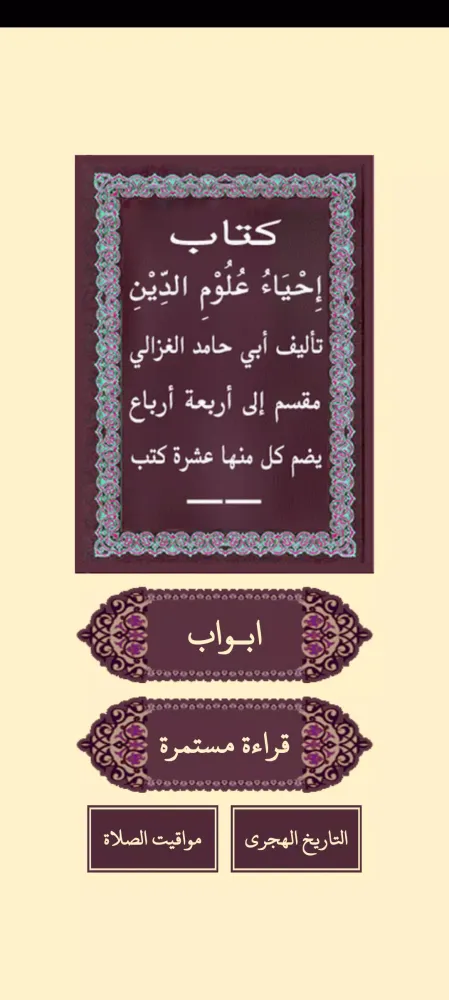 كتاب
إِحْيَاءُ عُلُوْمِ الدِّيْنِ
تأليف أبي حامد الغزالي
مقسم إلى أربعة أرباع
يضم كل منها عشرة كتب
ابـواب
قراءة مستمرة
التاريخ الهجرى
مواقيت الصلاة